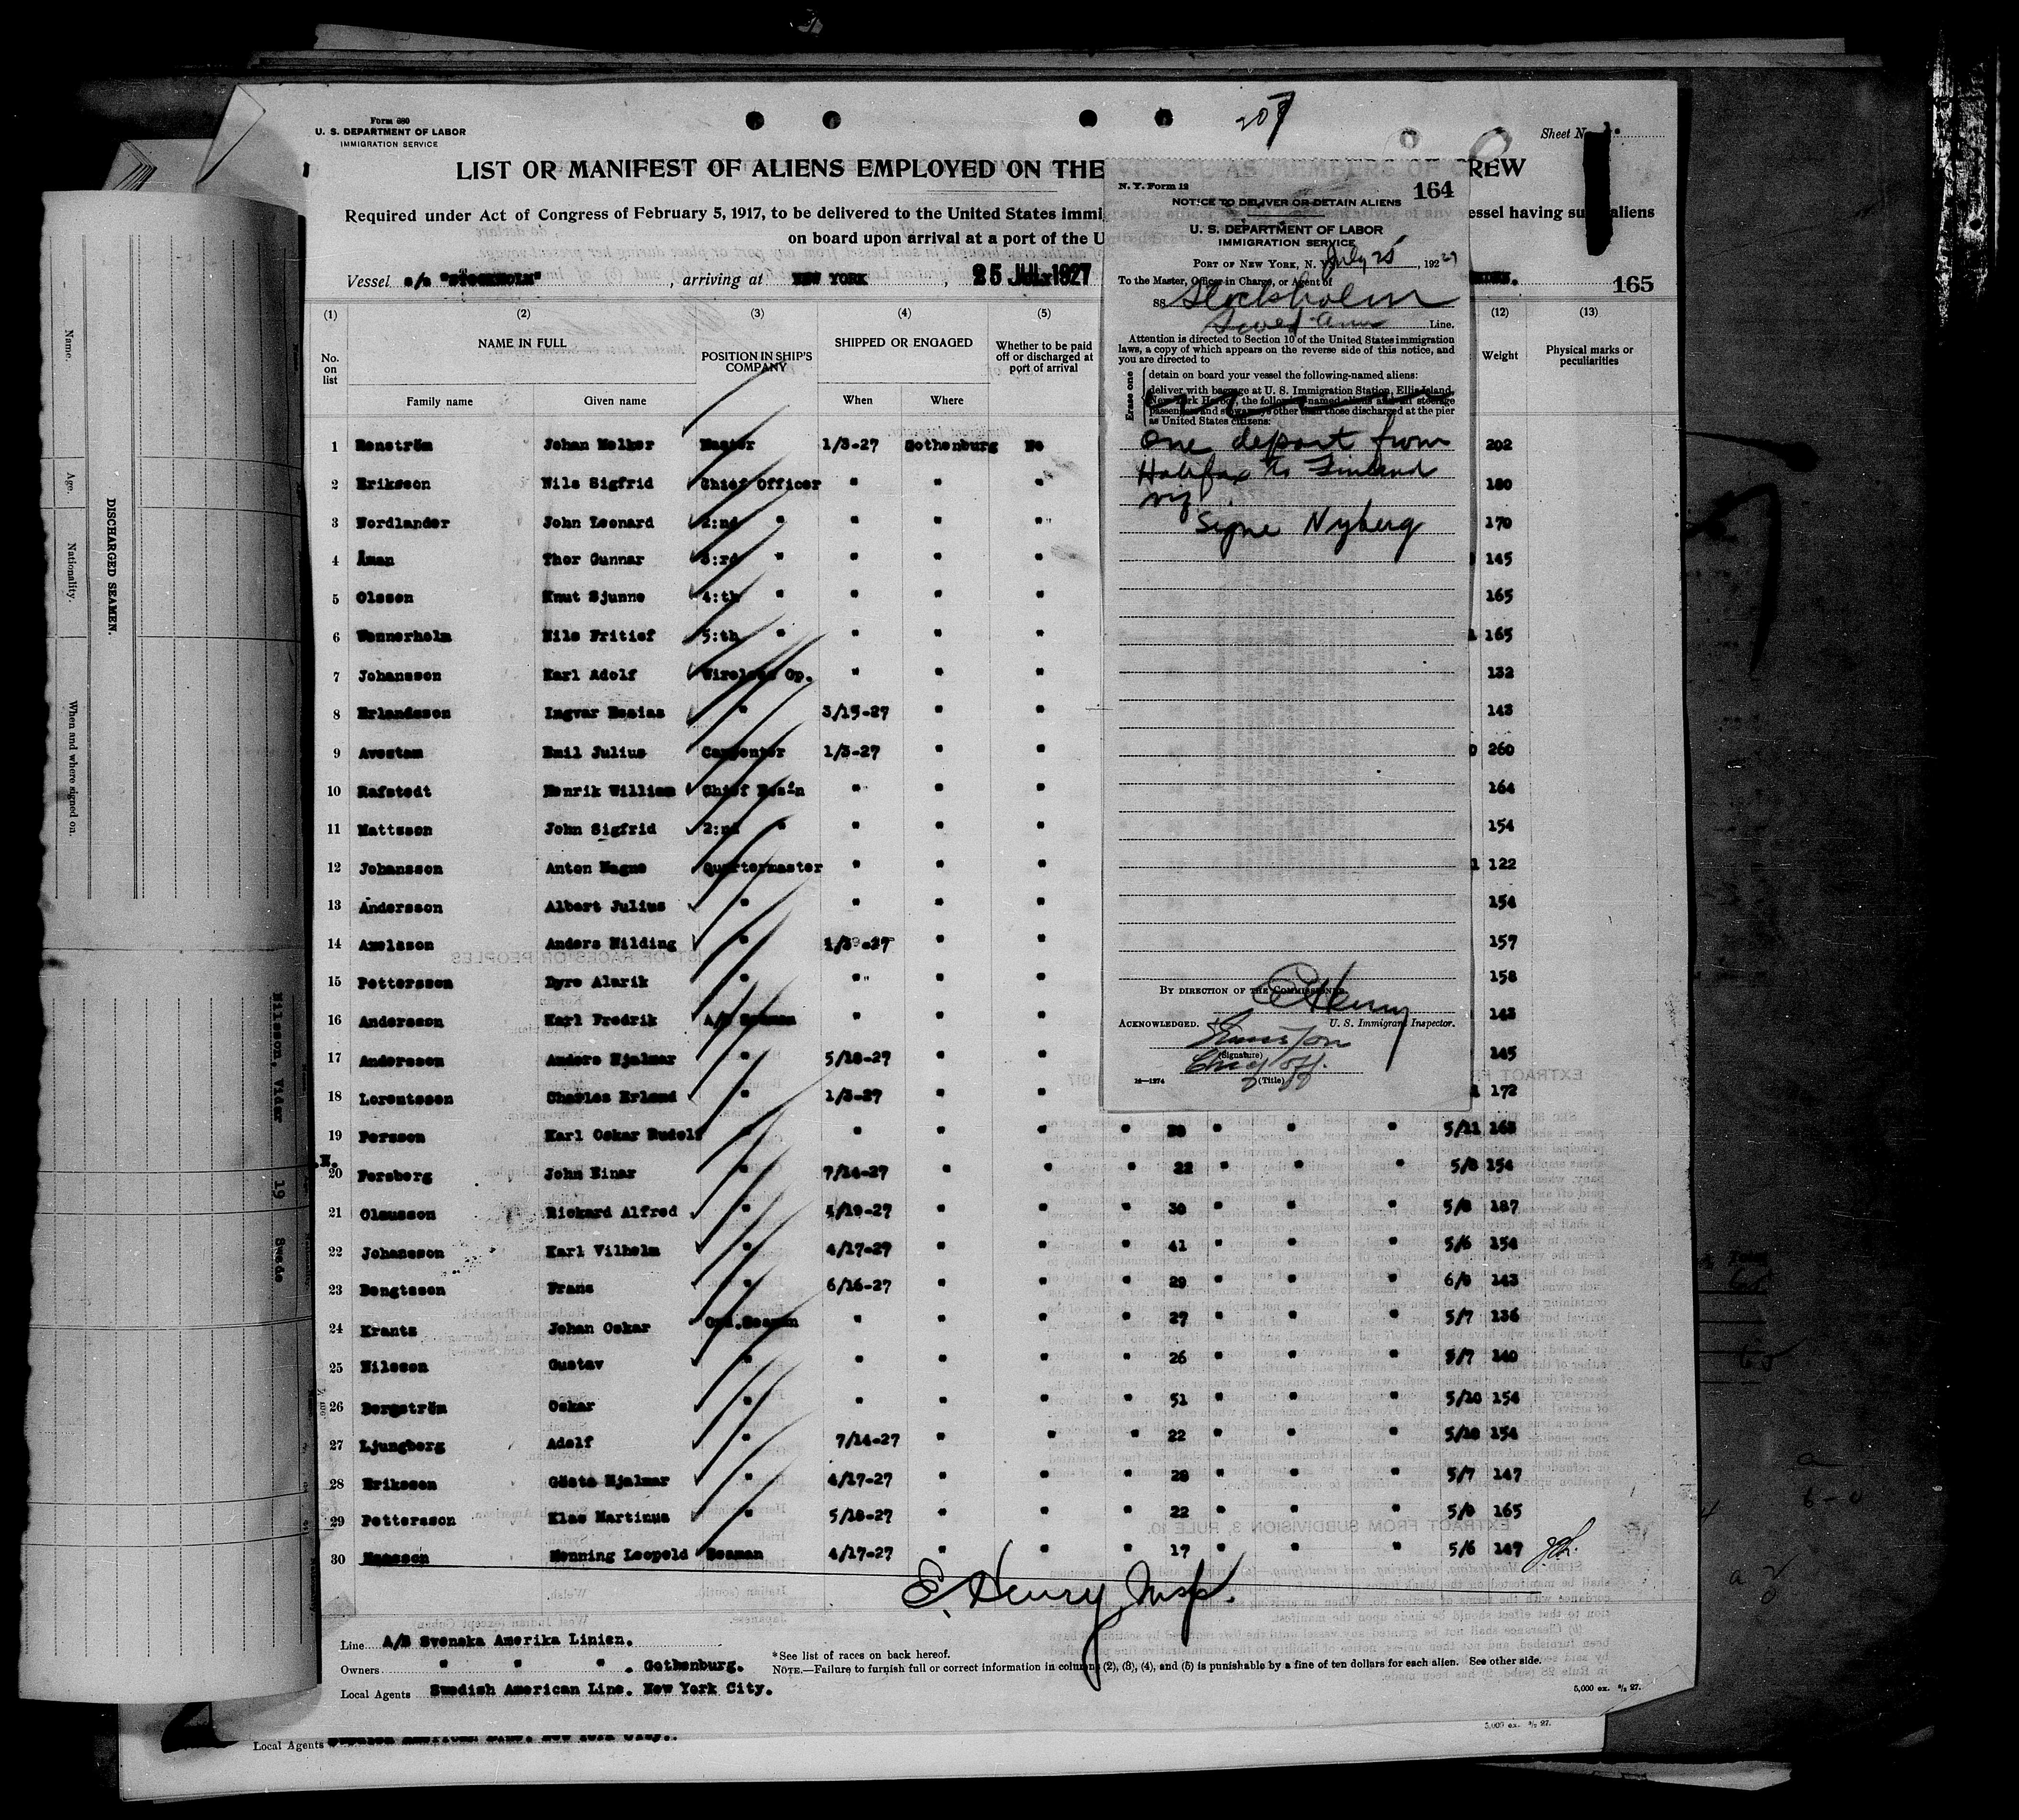 207
Form 680
U. S. DEPARTMENT OF LABOR
IMMIGRATION SERVICE
Sheet No.
LIST OR MANIFEST OF ALIENS EMPLOYED ON THE
REW
Required under Act of Congress of February 5, 1917, to be delivered to the United States immig
essel having su aliens
on board upon arrival at a port of the U
Vessel s/s "STOCKHOLM", arriving at NEW YORK, 25 JUL 1927
165
(1) (2) (3) (4) (5) (12) (13)
No. on list
NAME IN FULL
Family name Given name
POSITION IN SHIP'S COMPANY
SHIPPED OR ENGAGED
When Where
Whether to be paid off or discharged at port of arrival
Weight
Physical marks or peculiarities
1 Renström Johan Melker Master 1/3-27 Gothenburg No 202
2 Eriksson Nils Sigfrid Chief Officer " " " 180
3 Nordlander John Leonard 2:nd " " " " 170
4 Åman Thor Gunnar 3:rd " " " " 145
5 Olsson Knut Sjunne 4:th " " " " 165
6 Wennerholm Nils Fritiof 5:th " " " " 165
7 Johansson Karl Adolf Wireless Op. " " " 132
8 Erlandsson Ingvar Esaias " 3/15-27 " " 143
9 Avestam Emil Julius Carpenter 1/3-27 " " 260
10 Rafstedt Henrik William Chief Bos'n " " " 164
11 Mattsson John Sigfrid 2:nd " " " " 154
12 Johansson Anton Magne Quartermaster " " " 122
13 Andersson Albert Julius " " " " 154
14 Axelsson Anders Hilding " 1/3-27 " " 157
15 Pettersson Dyre Alarik " " " " 158
16 Andersson Karl Fredrik A/B Seaman " " " 143
17 Andersson Anders Hjalmar " 5/18-27 " " 145
18 Lorentsson Charles Erland " 1/3-27 " " 172
19 Persson Karl Oskar Rudolf " " " " " " " " 5/11
20 Forsberg John Einar " 7/14-27 " " " 22 " " " 5/8 154
21 Olausson Rickard Alfred " 4/19-27 " " " 30 " " " 5/8 187
22 Johansson Karl Vilhelm " 4/17-27 " " " 41 " " " 5/6 154
23 Bengtsson Frans " 6/16-27 " " " 29 " " " 6/0 143
24 Krantz Johan Oskar Ord.Seaman " " " " 27 " " " 5/7 136
25 Nilsson Gustav " " " " " 26 " " " 5/7 140
26 Bergström Oskar " " " " " 51 " " " 5/10 154
27 Ljungberg Adolf " 7/14-27 " " " 22 " " " 5/10 154
28 Eriksson Gösta Hjalmar " 4/17-27 " " " 28 " " " 5/7 147
29 Pettersson Klas Martinus " 5/18-27 " " " 22 " " " 5/8 165
30 Hansson Henning Leopold Seaman 4/17-27 " " " 17 " " " 5/6 147
E. Henry Insp.
Line A/B Svenska Amerika Linien.
Owners " " " . Gothenburg.
Local Agents Swedish American Line. New York City.
*See list of races on back hereof.
NOTE.—Failure to furnish full or correct information in columns (2), (3), (4), and (5) is punishable by a fine of ten dollars for each alien. See other side.
5,000 ex. 3/2 27.
Local Agents
5,000 ex. 3/2 27.
N. Y. Form 12
164
NOTICE TO DELIVER OR DETAIN ALIENS
U. S. DEPARTMENT OF LABOR
IMMIGRATION SERVICE
PORT OF NEW YORK, N. Y. July 25, 1927
To the Master, Officer in Charge, or Agent of
SS. Stockholm
Swed Am Line.
Attention is directed to Section 10 of the United States immigration
laws, a copy of which appears on the reverse side of this notice, and
you are directed to
Erase one
detain on board your vessel the following-named aliens:
deliver with baggage at U. S. Immigration Station, Ellis Island,
New York Harbor, the following-named aliens and all steerage
passengers and stowaways other than those discharged at the pier
as United States citizens:
One deport from
Halifax to Finland
viz
Signe Nyberg
BY DIRECTION OF THE COMMISSIONER.
E Henry
U. S. Immigrant Inspector.
ACKNOWLEDGED.
(Signature)
Chief Off.
(Title)
14—1274
DISCHARGED SEAMEN.
Name.
Age.
Nationality.
When and where signed on.
Nilsson, Vidar 19 Swede